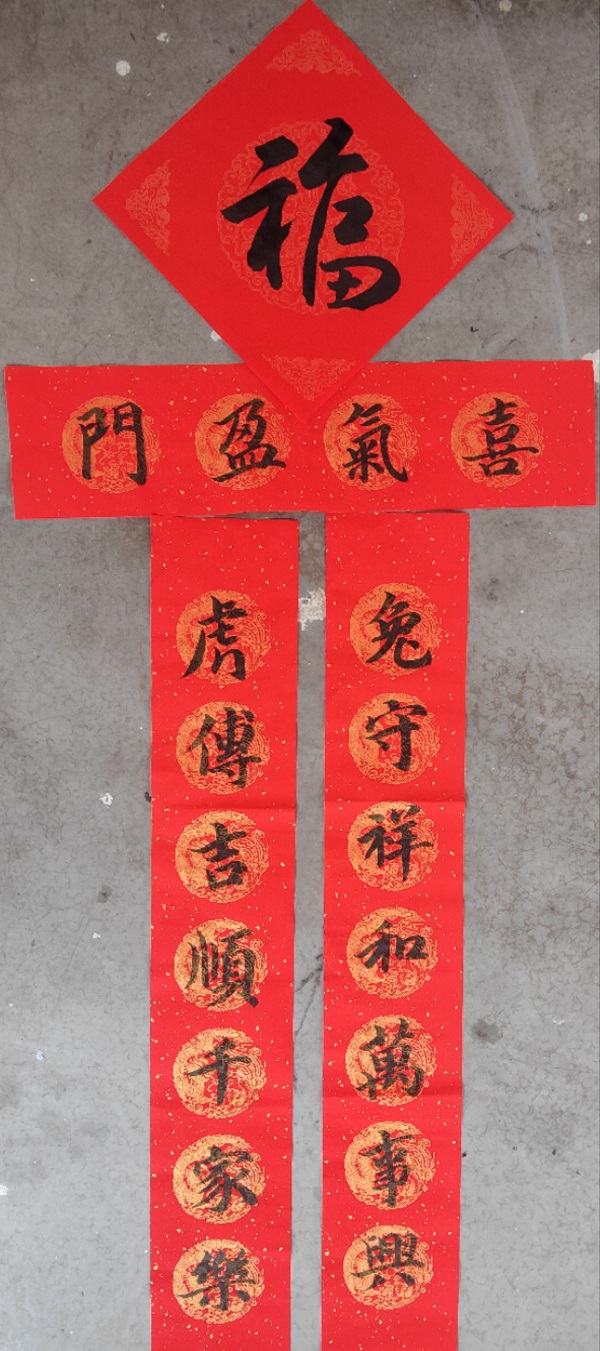 福
喜氣盈門
兔守祥和萬事興
虎傳吉順千家樂